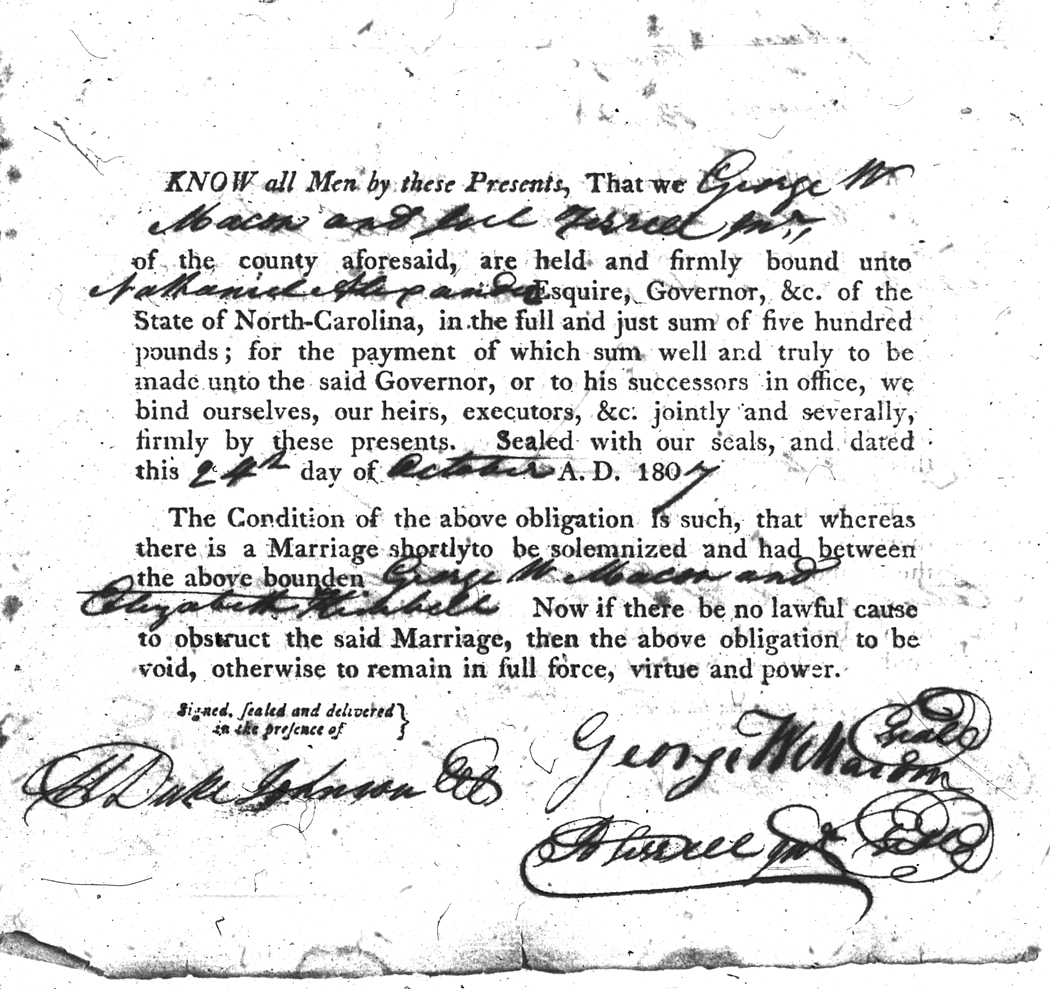 KNOW all Men by these Presents, That we George W
Macon and Joel Terrell Jnr,
of the county aforesaid, are held and firmly bound unto
Nathaniel Alexander Esquire, Governor, &c. of the
State of North-Carolina, in the full and just sum of five hundred
pounds; for the payment of which sum well and truly to be
made unto the said Governor, or to his successors in office, we
bind ourselves, our heirs, executors, &c. jointly and severally,
firmly by these presents. Sealed with our seals, and dated
this 24th day of October A. D. 1807
The Condition of the above obligation is such, that whereas
there is a Marriage shortly to be solemnized and had between
the above bounden George W Macon and
Elizabeth Kimbell Now if there be no lawful cause
to obstruct the said Marriage, then the above obligation to be
void, otherwise to remain in full force, virtue and power.
Signed, sealed and delivered
in the presence of
Duke Johnson
George W Macon Seal
Terrell Jnr Seal